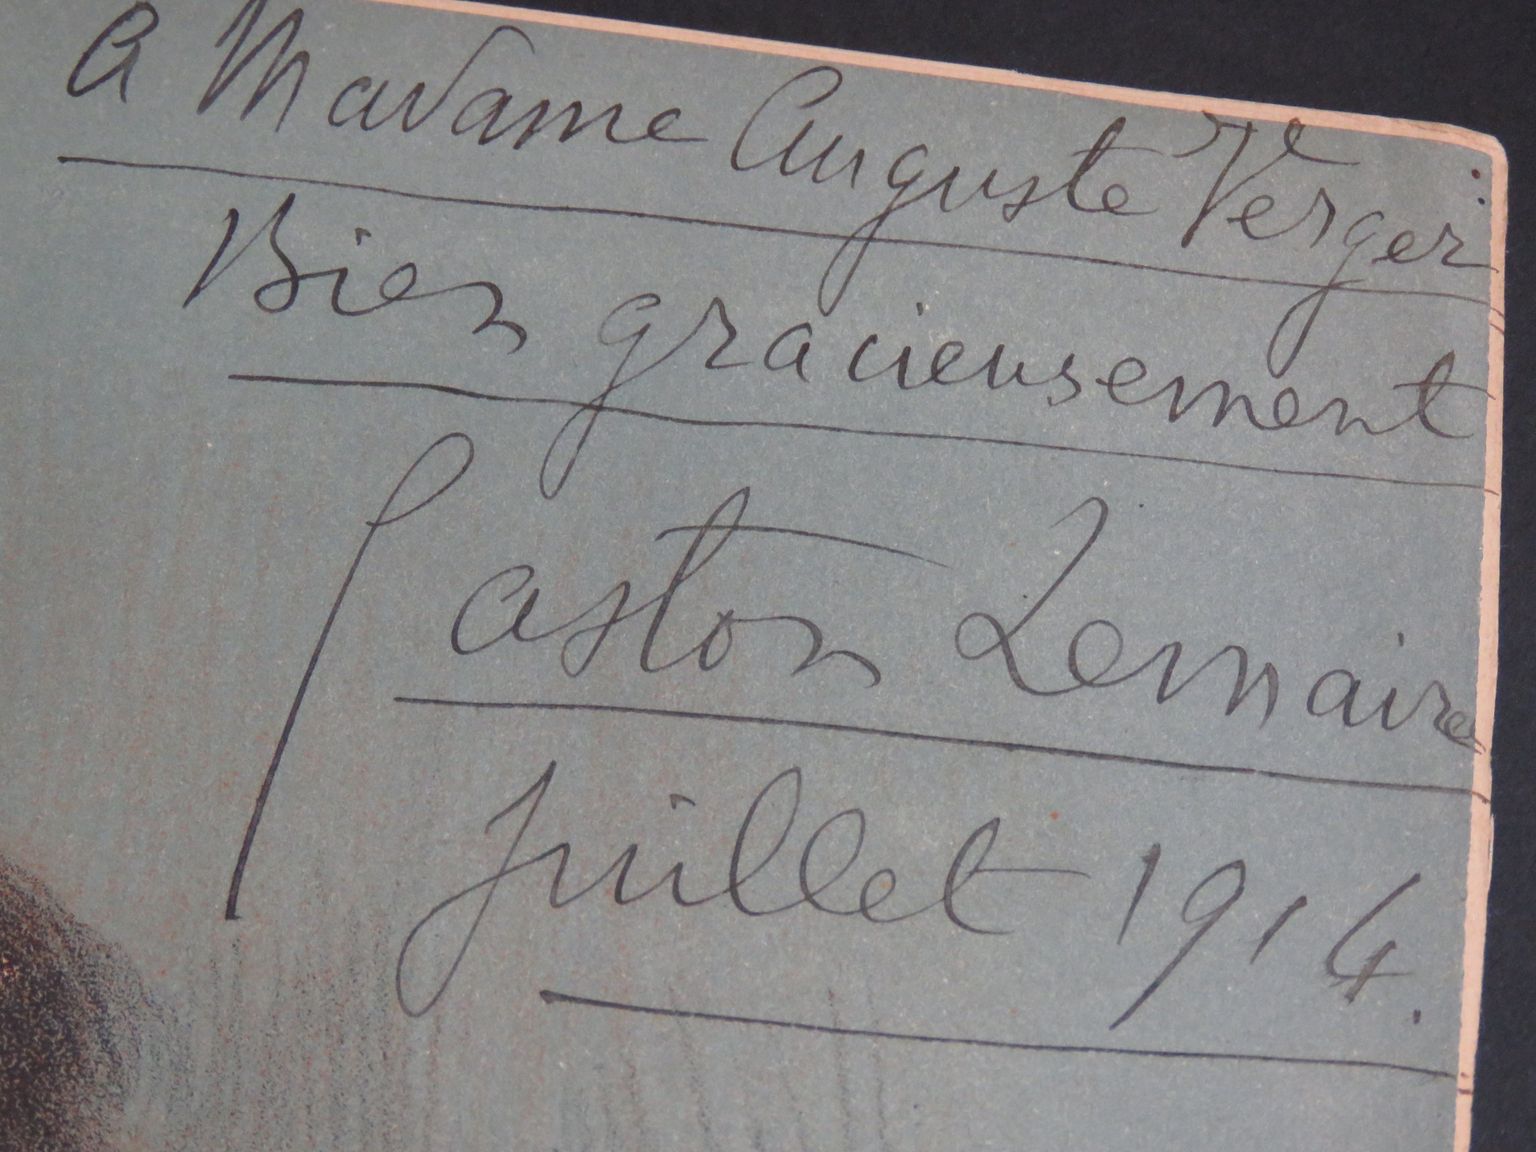 A Madame Auguste Verger
Bien gracieusement
Gaston Lemaire
Juillet 1914.